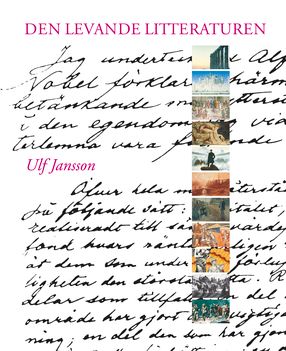 DEN LEVANDE LITTERATUREN
Jag undertec Alf
Nobel förklar härm
betänkande m yttersta
i den egendom vid
terlemna vara f ande
Ulf Jansson
Öfver hela återstå
på följande sätt: talet,
realiseradt till sä värde
fond hvars ränta ligen
åt dem som under förlup
ligheten den största ta. R
delar som tillfal del
område har gjort
ning; en del den som har gjor